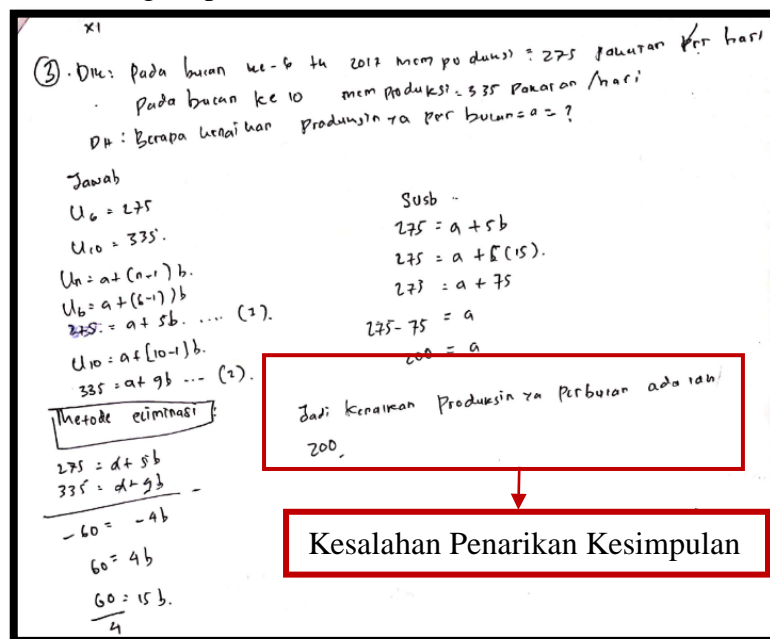 XI
(3). Dik: Pada bulan ke-6 th 2017 mem po duksi = 275 pakaian per hari
Pada bulan ke 10 mem produksi = 335 pakaian /hari
Dit : Berapa kenaikan produksinya per bulan = a = ?
Jawab
U6 = 275
U10 = 335.
Un = a+ (n-1) b.
U6 = a+ (6-1))b
275. = a+ 5b. .... (1).
U10 = a+ [10-1)b.
335 = a+ 9b ... (2).
Metode eliminasi :
275 = a+ 5b
335 = a+ 9b -
-60 = -4b
60 = 4b
60/4 = 15 b.
Susb ..
275 = a + 5b
275 = a + 5(15).
275 = a + 75
275-75 = a
200 = a
Jadi kenaikan produksinya perbulan adalah
200.
Kesalahan Penarikan Kesimpulan